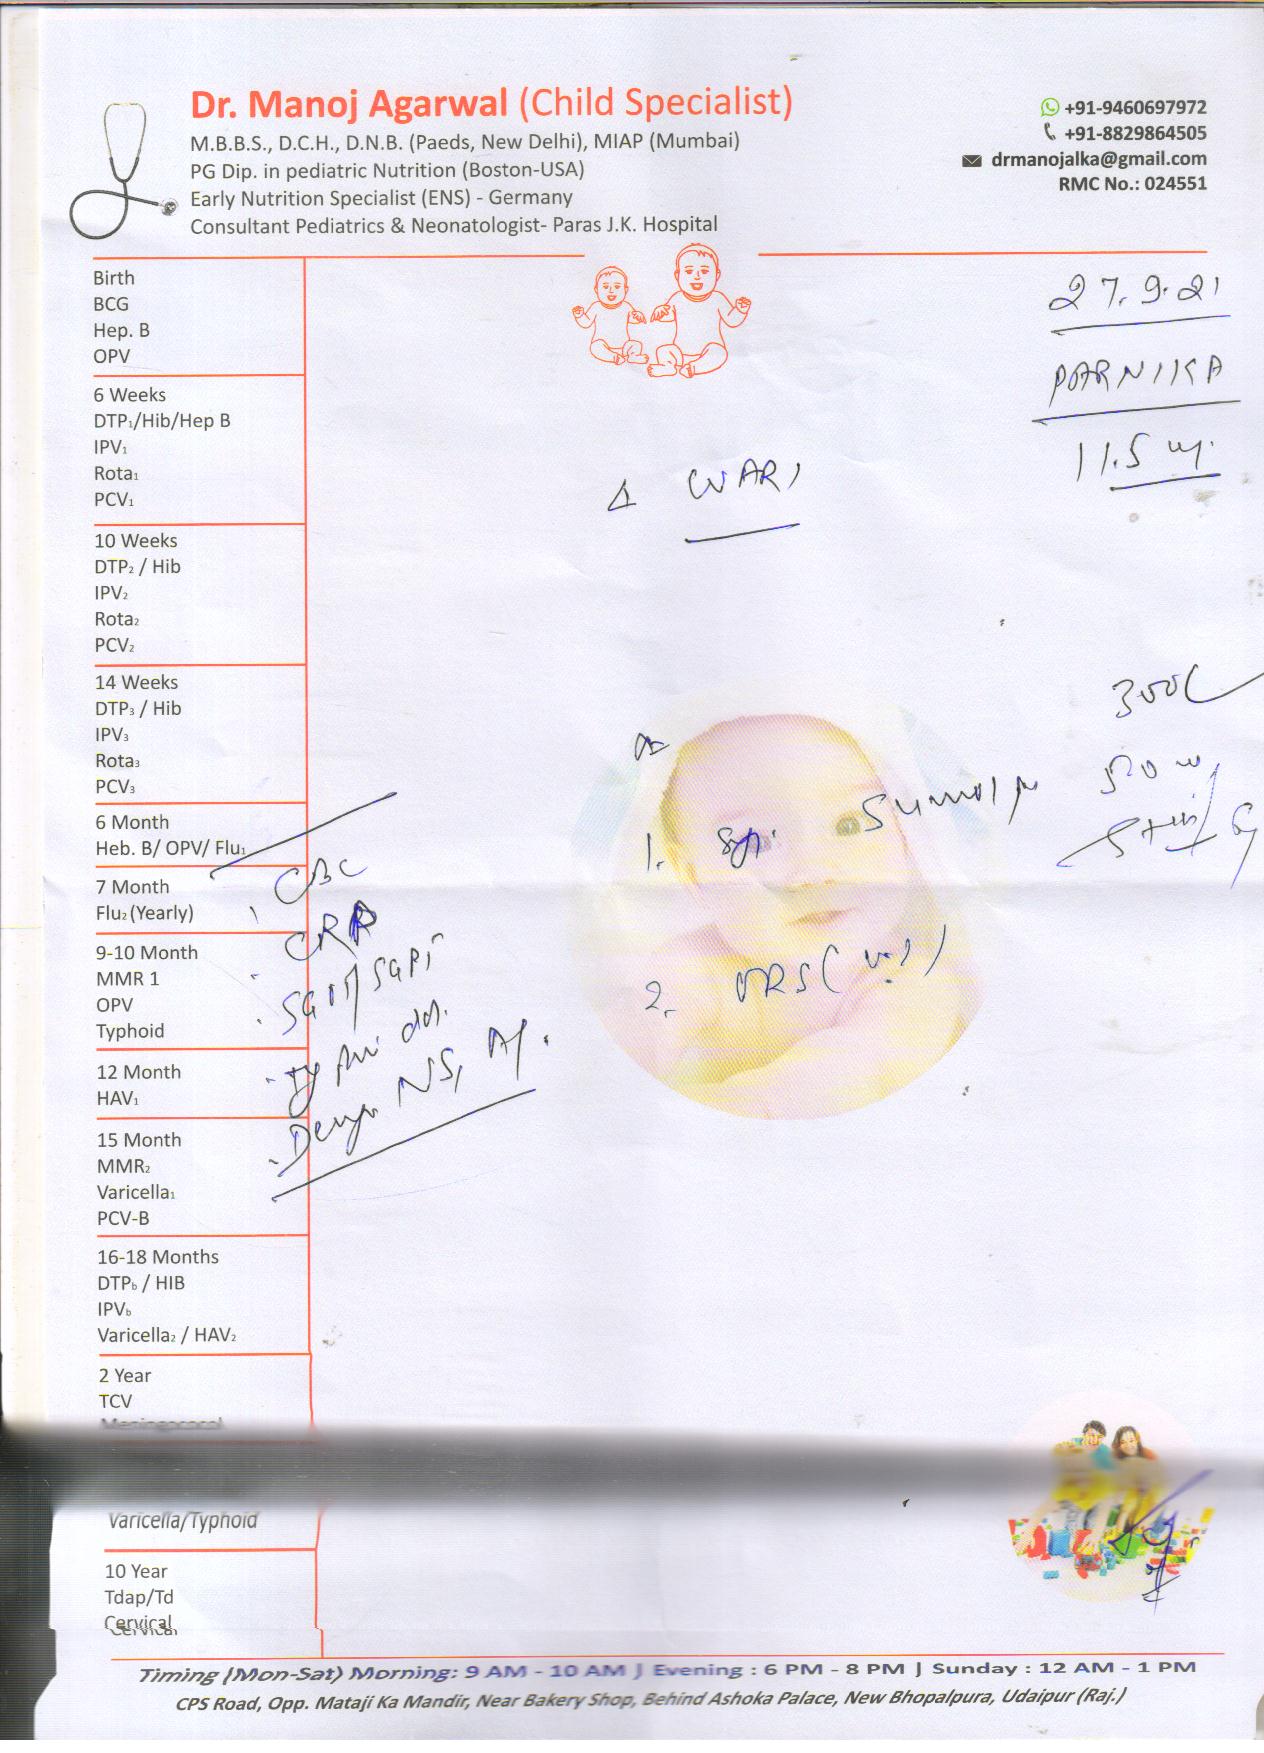 Dr. Manoj Agarwal (Child Specialist)
M.B.B.S., D.C.H., D.N.B. (Paeds, New Delhi), MIAP (Mumbai)
PG Dip. in pediatric Nutrition (Boston-USA)
Early Nutrition Specialist (ENS) - Germany
Consultant Pediatrics & Neonatologist- Paras J.K. Hospital
+91-9460697972
+91-8829864505
drmanojalka@gmail.com
RMC No.: 024551
27.9.21
PARNIKA
11.5
Birth
BCG
Hep. B
OPV
6 Weeks
DTP₁/Hib/Hep B
IPV₁
Rota₁
PCV₁
10 Weeks
DTP₂ / Hib
IPV₂
Rota₂
PCV₂
14 Weeks
DTP₃ / Hib
IPV₃
Rota₃
PCV₃
6 Month
Heb. B/ OPV/ Flu₁
7 Month
Flu₂ (Yearly)
9-10 Month
MMR 1
OPV
Typhoid
12 Month
HAV₁
15 Month
MMR₂
Varicella₁
PCV-B
16-18 Months
DTPb / HIB
IPVb
Varicella₂ / HAV₂
2 Year
TCV
Meningococal
Varicella/Typhoid
10 Year
Tdap/Td
Cervical
CBC
CRP
SGOT/SGPT
NS1
1. Syp.
2. ORS
Timing (Mon-Sat) Morning: 9 AM - 10 AM | Evening : 6 PM - 8 PM | Sunday : 12 AM - 1 PM
CPS Road, Opp. Mataji Ka Mandir, Near Bakery Shop, Behind Ashoka Palace, New Bhopalpura, Udaipur (Raj.)